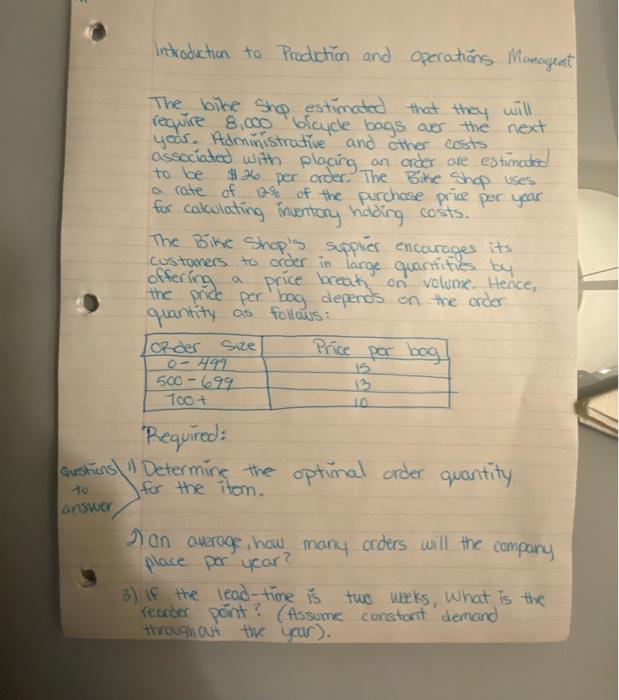 Introduction to Prodction and operations Managemt
The bike shop estimated that they will
require 8,000 bicycle bags over the next
year. Administrative and other costs
associated with placing an order are estimated
to be $26 per order. The Bike Shop uses
a rate of 12% of the purchase price per year
for calculating inventory holding costs.
The Bike Shop's supplier encourages its
customers to order in large quantities by
offering a price break on volume. Hence,
the price per bag depends on the order
quantity as follows:
Order Size Price per bag
0-499 15
500-699 13
700+ 10
Required:
Questions to answer
1) Determine the optimal order quantity
for the item.
2) On average, how many orders will the company
place per year?
3) If the lead-time is two weeks, what is the
reorder point? (Assume constant demand
throughout the year).